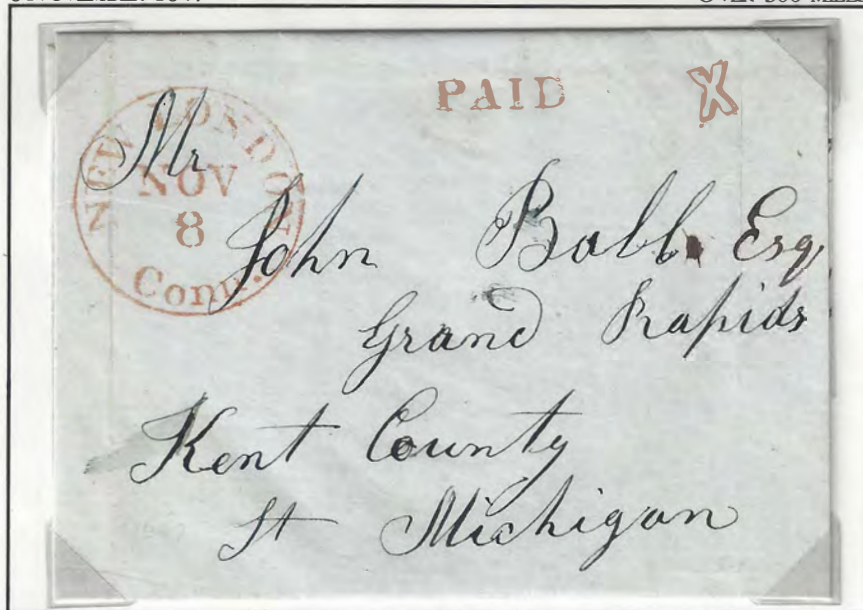 PAID X
NEW LONDON
NOV
8
Conn.
Mr
John Ball Esq
Grand Rapids
Kent County
St Michigan